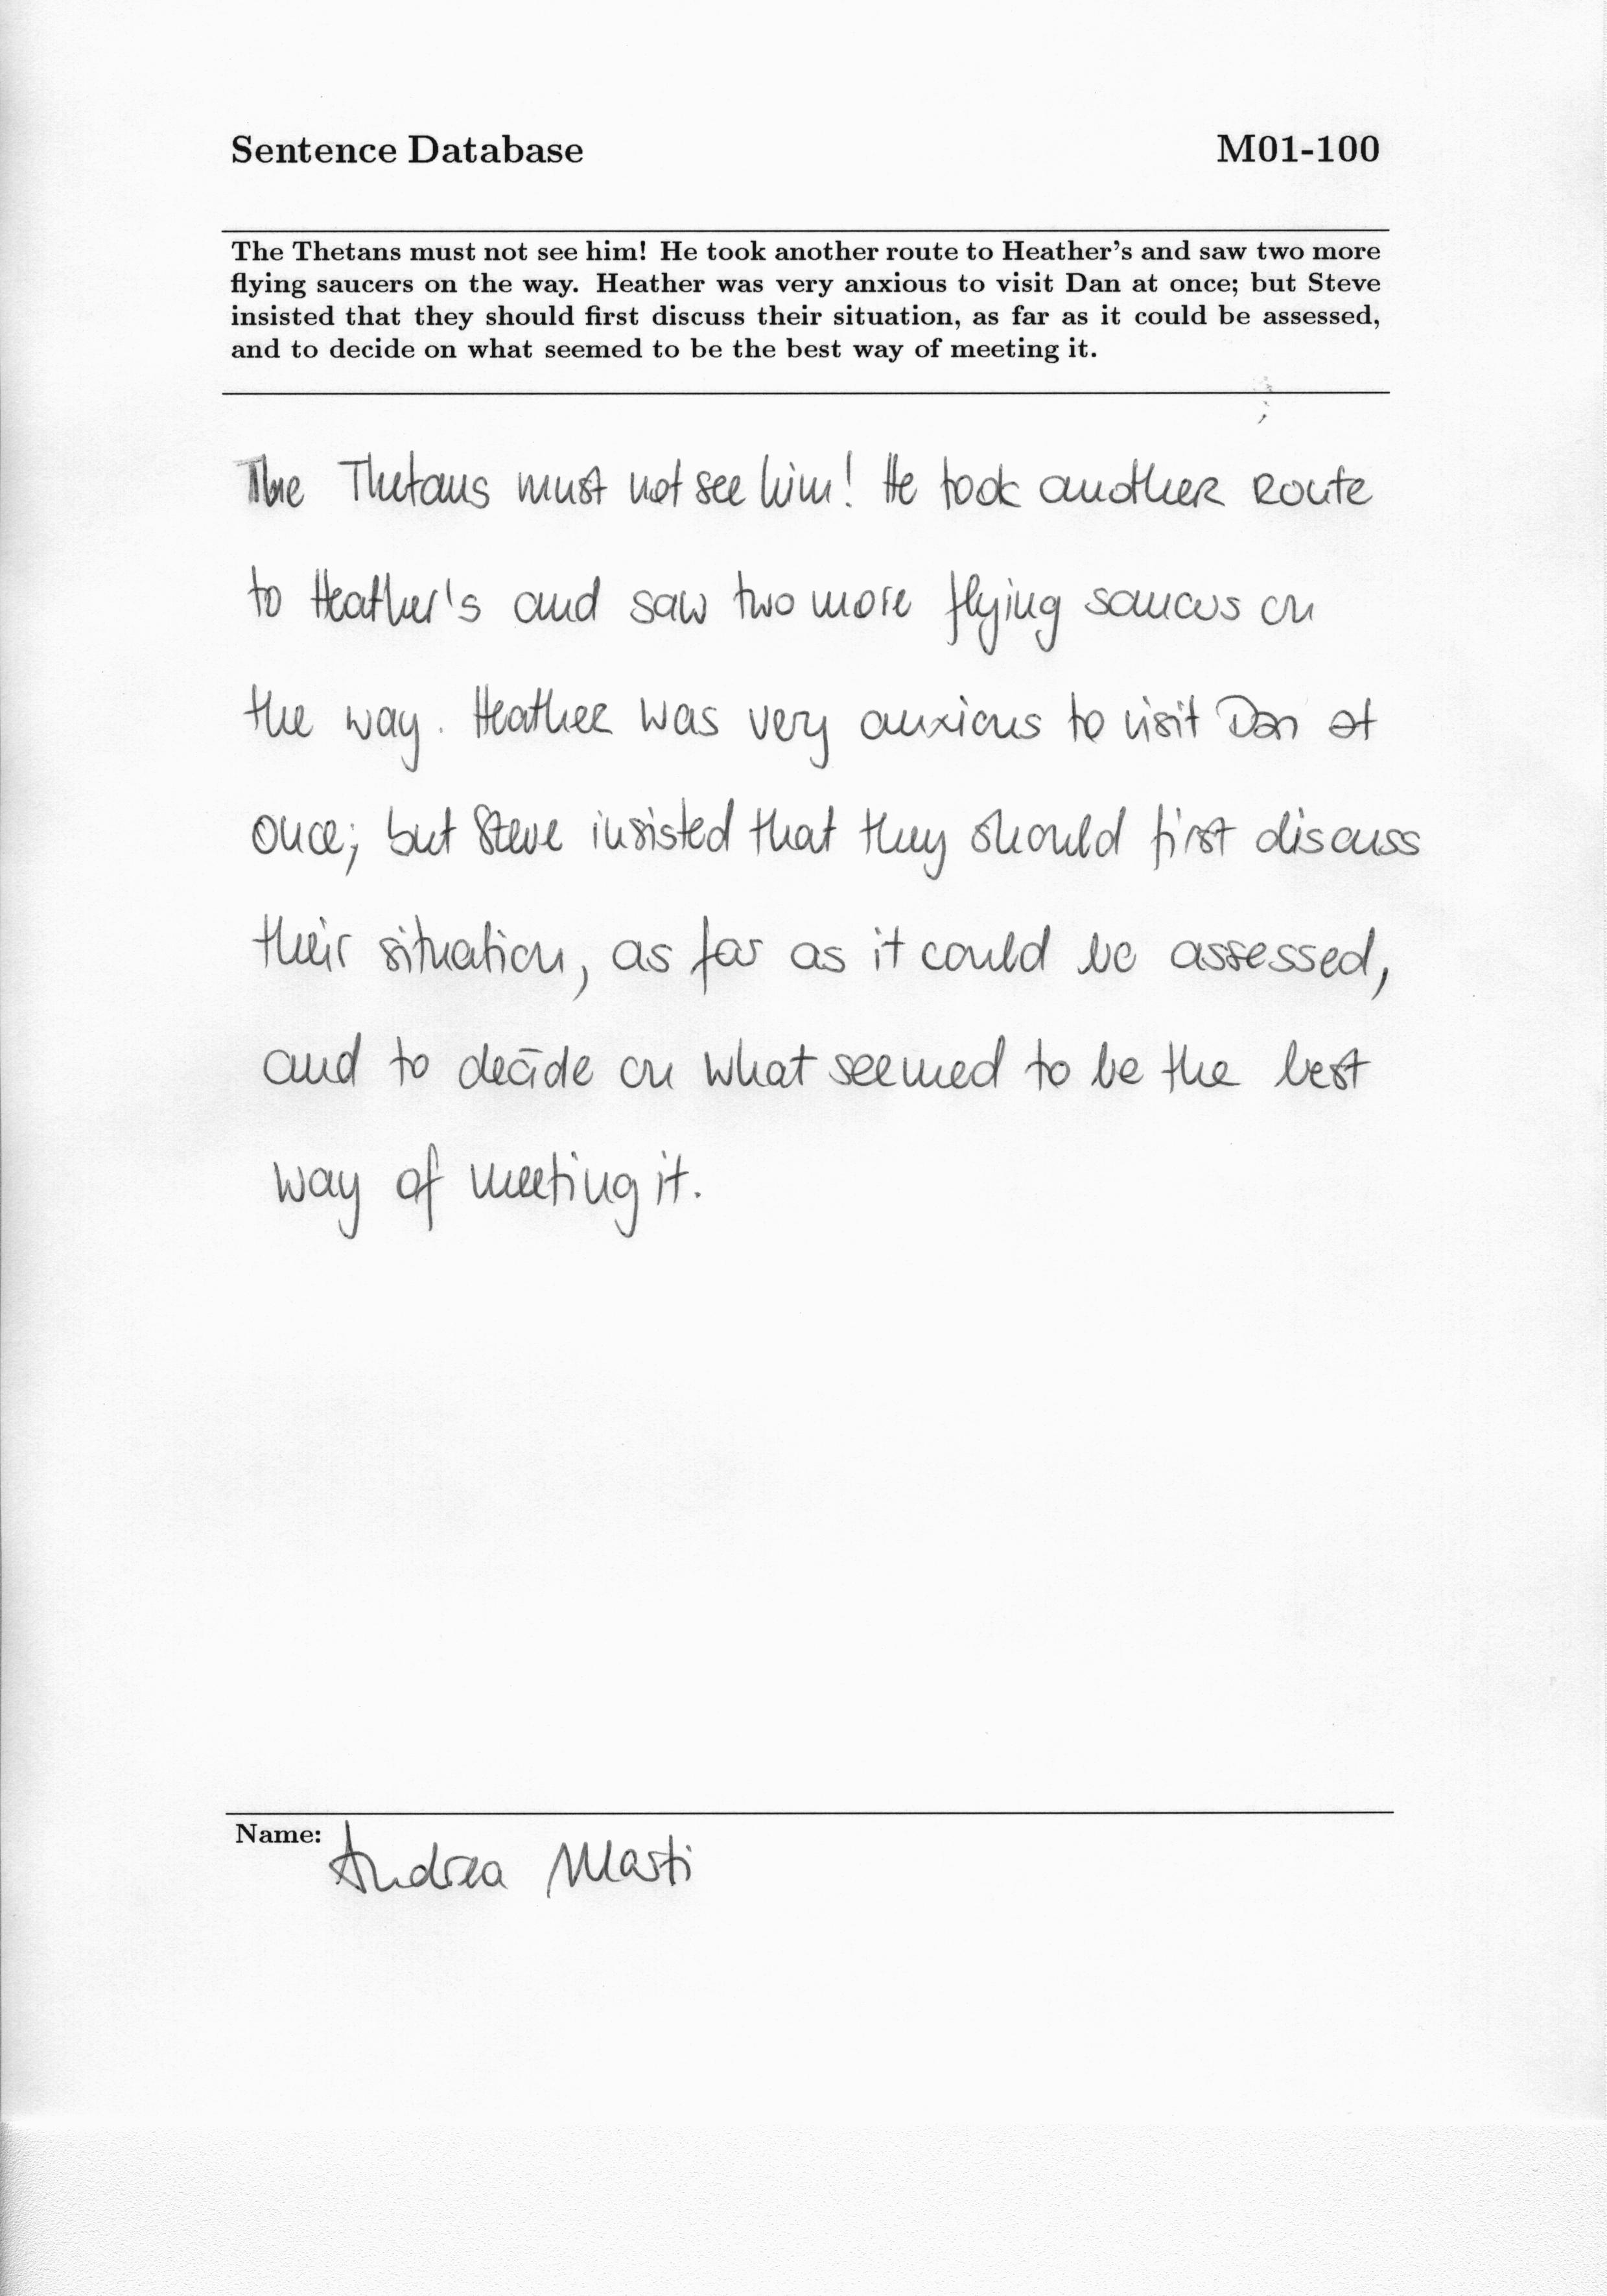 Sentence Database M01-100
The Thetans must not see him! He took another route to Heather's and saw two more
flying saucers on the way. Heather was very anxious to visit Dan at once; but Steve
insisted that they should first discuss their situation, as far as it could be assessed,
and to decide on what seemed to be the best way of meeting it.
The Thetans must not see him! He took another route
to Heather's and saw two more flying saucers on
the way. Heather was very anxious to visit Dan at
once; but Steve insisted that they should first discuss
their situation, as far as it could be assessed,
and to decide on what seemed to be the best
way of meeting it.
Name: Andrea Marti